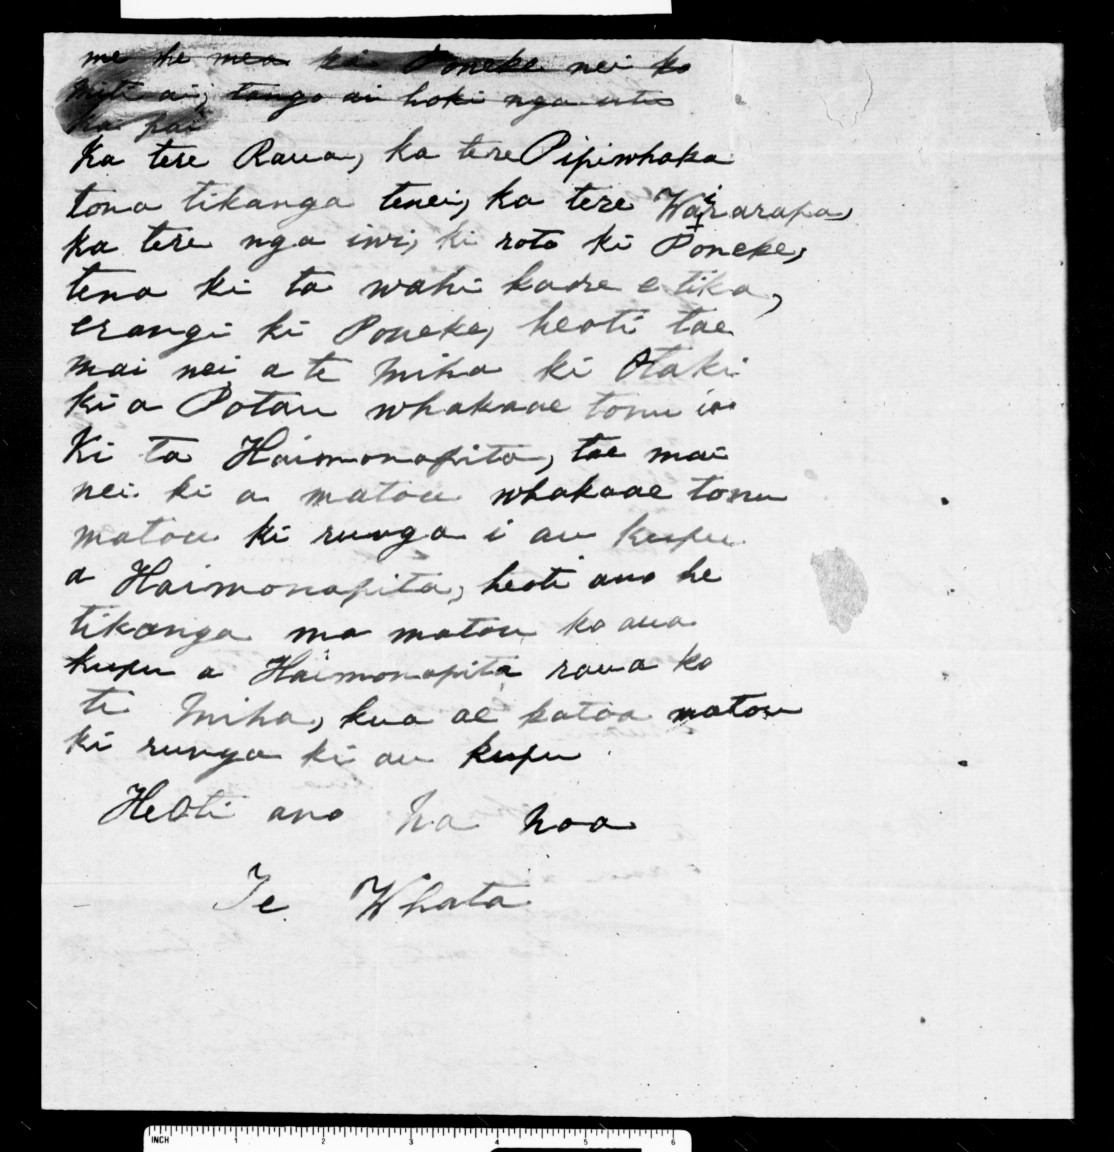 me he mea ki Poneke nei ko
miti ai, tango ai hoki nga utu
ka pai
Ka tere Raua, ka tere Pipiwhaka
tona tikanga tenei, ka tere Wairarapa,
ka tere nga iwi, ki roto ki Poneke,
tena ki ta wahi kaore e tika,
erangi ki Poneke, heoti tae
mai nei a te Miha ki Otaki
ki a Potau whakaaae tonu ia
Ki ta Haimonapita, tae mai
nei ki a matou whakaaae tonu
matou ki runga i au kupu
a Haimonapita, heoti ano he
tikanga ma matou ko aua
kupu a Haimonapita raua ko
te Miha, kua ae katoa matou
ki runga ki au kupu
HeOti ano Na Noa
Te Whata
INCH 1 2 3 4 5 6